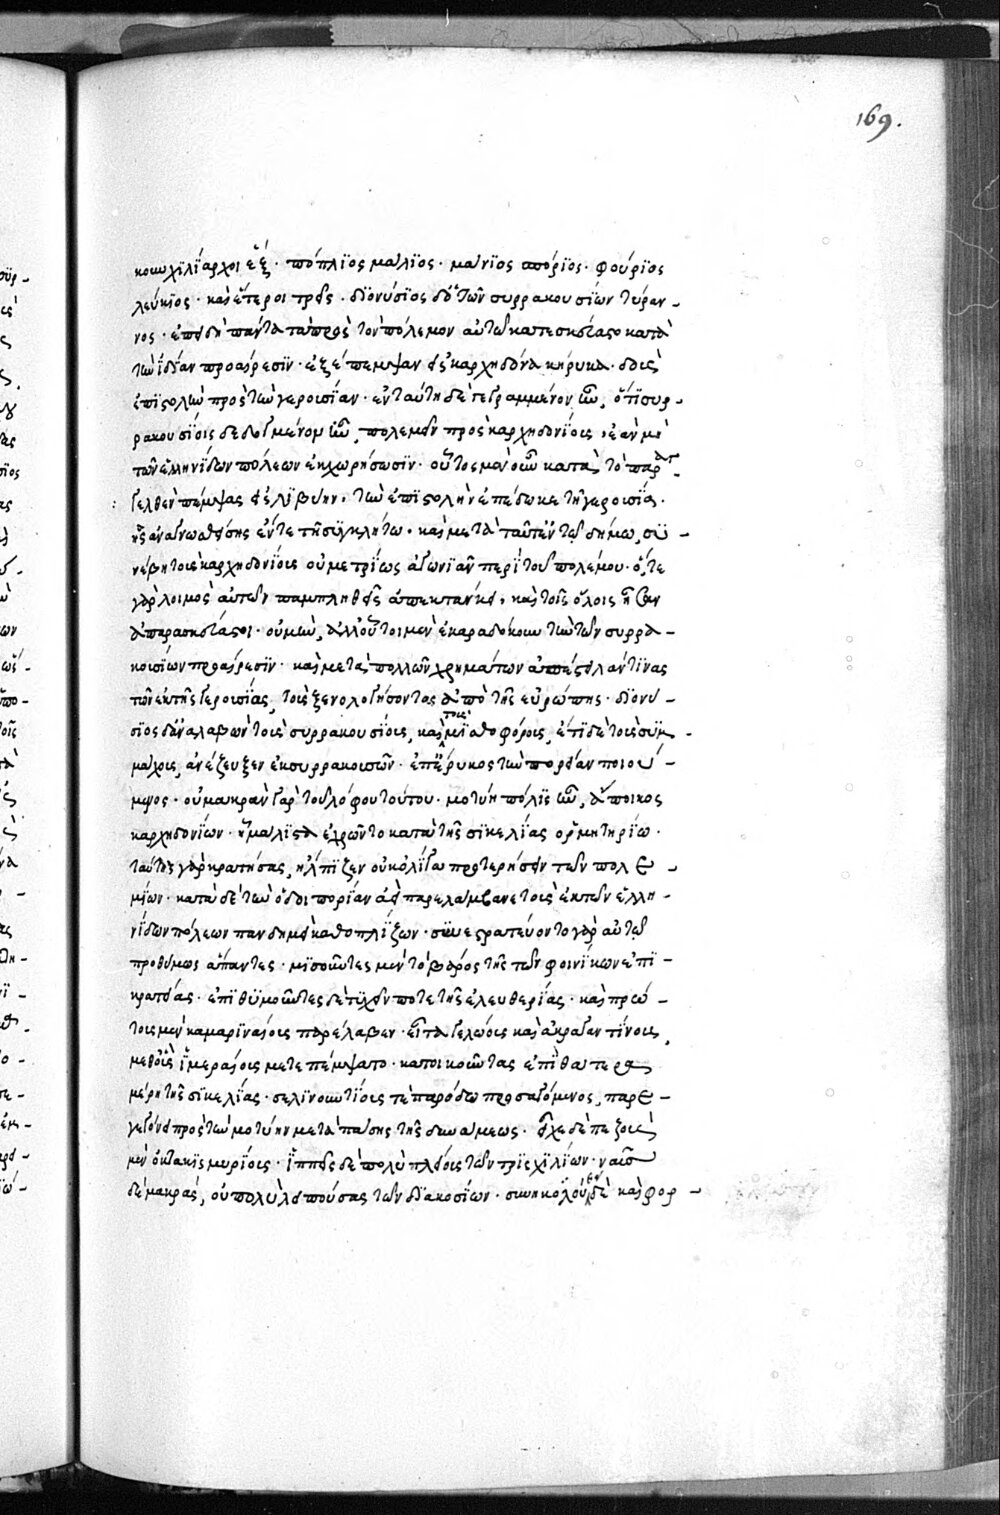 κουν χϊλΐαρχοι ἕξ · πόπλϊος μάλϊος · μάνϊος σπόρϊος · φούρϊος
λεύκϊος · καὶ ἕτεροι τρεῖς · δϊονύσϊος δ' ὁ τῶν συρρακουσίων τύραν -
νος · ἐπειδὴ πάντα τὰ πρὸς τὸν πόλεμον αὐτῶ κατεσκεύαστο κατὰ
τὴν ἰδίαν προαίρεσϊν · ἐξέπεμψαν εἰς καρχηδόνα κήρυκα · δοὺς
ἐπϊστολὴν πρὸς τὴν γερουσΐαν · ἐν ταύτη δὲ γεγραμμένον ἦν, ὅτϊ συρ -
ρακουσΐοις δεδογμένον ἦν, πολεμεῖν πρὸς καρχηδονΐους, ἐὰν μὴ
τῶν ἑλληνΐδων πόλεων ἐκχωρήσωσϊν · οὗτος μὲν οὖν κατὰ τὸ παραγ -
γελθὲν πέμψας εἰς λϊβύην, τὴν ἐπϊστολὴν ἐπέδωκε τῆ γερουσΐα ·
ἧς ἀναγνωσθείσης ἔν τε τῆ σϋγκλήτω · καὶ μετὰ ταῦτ' ἐν τῶ δήμω, σϋ -
νέβη τοὺς καρχηδονΐους οὐ μετρΐως ἀγωνϊᾶν περὶ τοῦ πολέμου · ὅ, τε
γὰρ λοιμὸς αὐτῶν παμπληθεῖς ἀπεκτάγκει, καὶ τοῖς ὅλοις ἦσαν
ἀπαρασκεύαστοι · οὐ μὴν, ἀλλ' οὗτοι μὲν ἐκαραδόκουν τὴν τῶν συρρα -
κουσΐων προαίρεσϊν · καὶ μετὰ πολλῶν χρημάτων ἀπέστειλαν τϊνας
τῶν ἐκ τῆς γερουσΐας, τοὺς ξενολογήσοντας ἀπὸ τῆς εὐρώπης · δϊονύ -
σϊος δ' ἀναλαβὼν τοὺς συρρακουσΐους, καὶ τοὺς μϊσθοφόρους, ἔτϊ δὲ τοὺς συμ -
μάχους, ἀνέζευξεν ἐκ συρρακουσῶν · ἐπ' ἔρυκος τὴν πορείαν ποιού -
μενος · οὐ μακρὰν γὰρ τοῦ λόφου τούτου · μοτύη πόλϊς ἦν, ἄποικος
καρχηδονΐων · ἧ μάλϊστα ἐχρῶντο κατὰ τῆς σϊκελΐας ὁρμητηρΐω ·
ταύτης γὰρ κρατήσας, ἤλπϊζεν οὐκ ὀλΐγω προτερήσειν τῶν πολε -
μΐων · κατὰ δὲ τὴν ὁδοιπορΐαν ἀεὶ παρελάμβανε τοὺς ἐκ τῶν ἑλλη -
νΐδων πόλεων πανδημεὶ καθοπλΐζων · συνεστρατεύοντο γὰρ αὐτῶ
προθύμως ἅπαντες · μϊσοῦντες μὲν τὸ βάρος τῆς τῶν φοινΐκων ἐπϊ -
κρατείας · ἐπϊθϋμοῦντες δὲ τϋχεῖν ποτε τῆς ἐλευθερΐας · καὶ πρώ -
τους μὲν καμαρϊναΐους παρέλαβεν · εἶτα γελώους καὶ ἀκραγαντΐνους,
μεθ' οὓς ἱμεραΐους μετεπέμψατο · κατοικοῦντας ἐπὶ θάτερα
μέρη τῆς σϊκελΐας · σελϊνουντΐους τὲ παρόδω προσαγόμενος, παρε -
γείονει πρὸς τὴν μοτύην μετὰ πάσης τῆς δυνάμεως · εἶχε δὲ πεζοὺς
μὲν ὀκτακϊς μυρΐους · ἱππεῖς δὲ πολὺ πλείους τῶν τρϊσχϊλΐων · ναῦς
δὲ μακρὰς, οὐ πολὺ λειπούσας τῶν δϊακοσΐων · συνηκολούθει δὲ καὶ φορ -